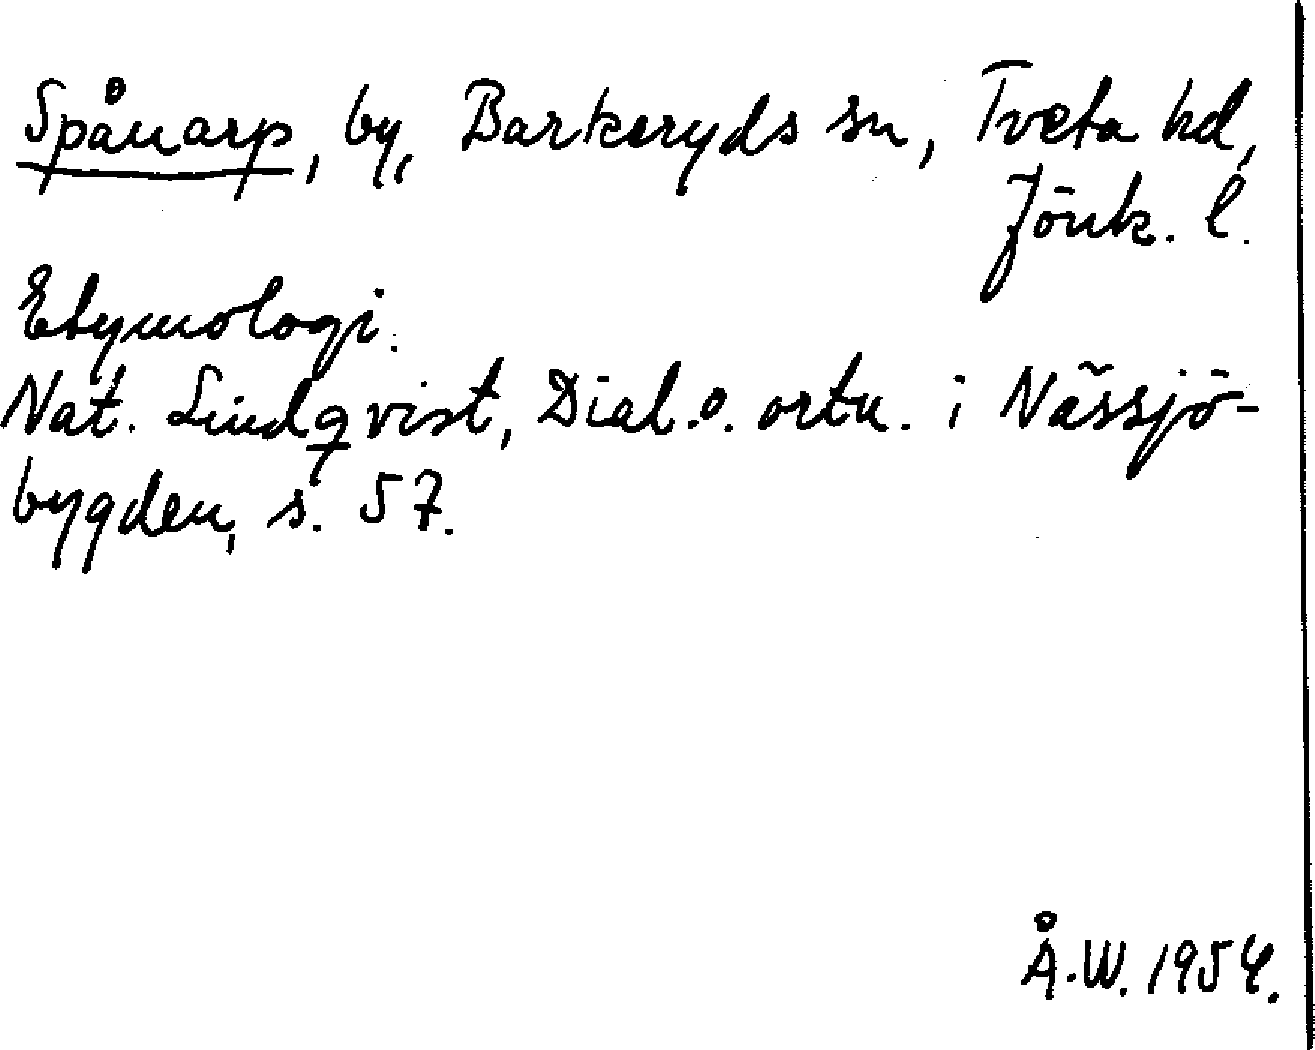 Spånarp, by, Barkeryds sn, Tveta hd,
Jönk. l.
Etymologi.
Nat. Lindqvist, Dial. o. ortn. i Nässjö-
bygden, s. 57.
Å.W. 1954.